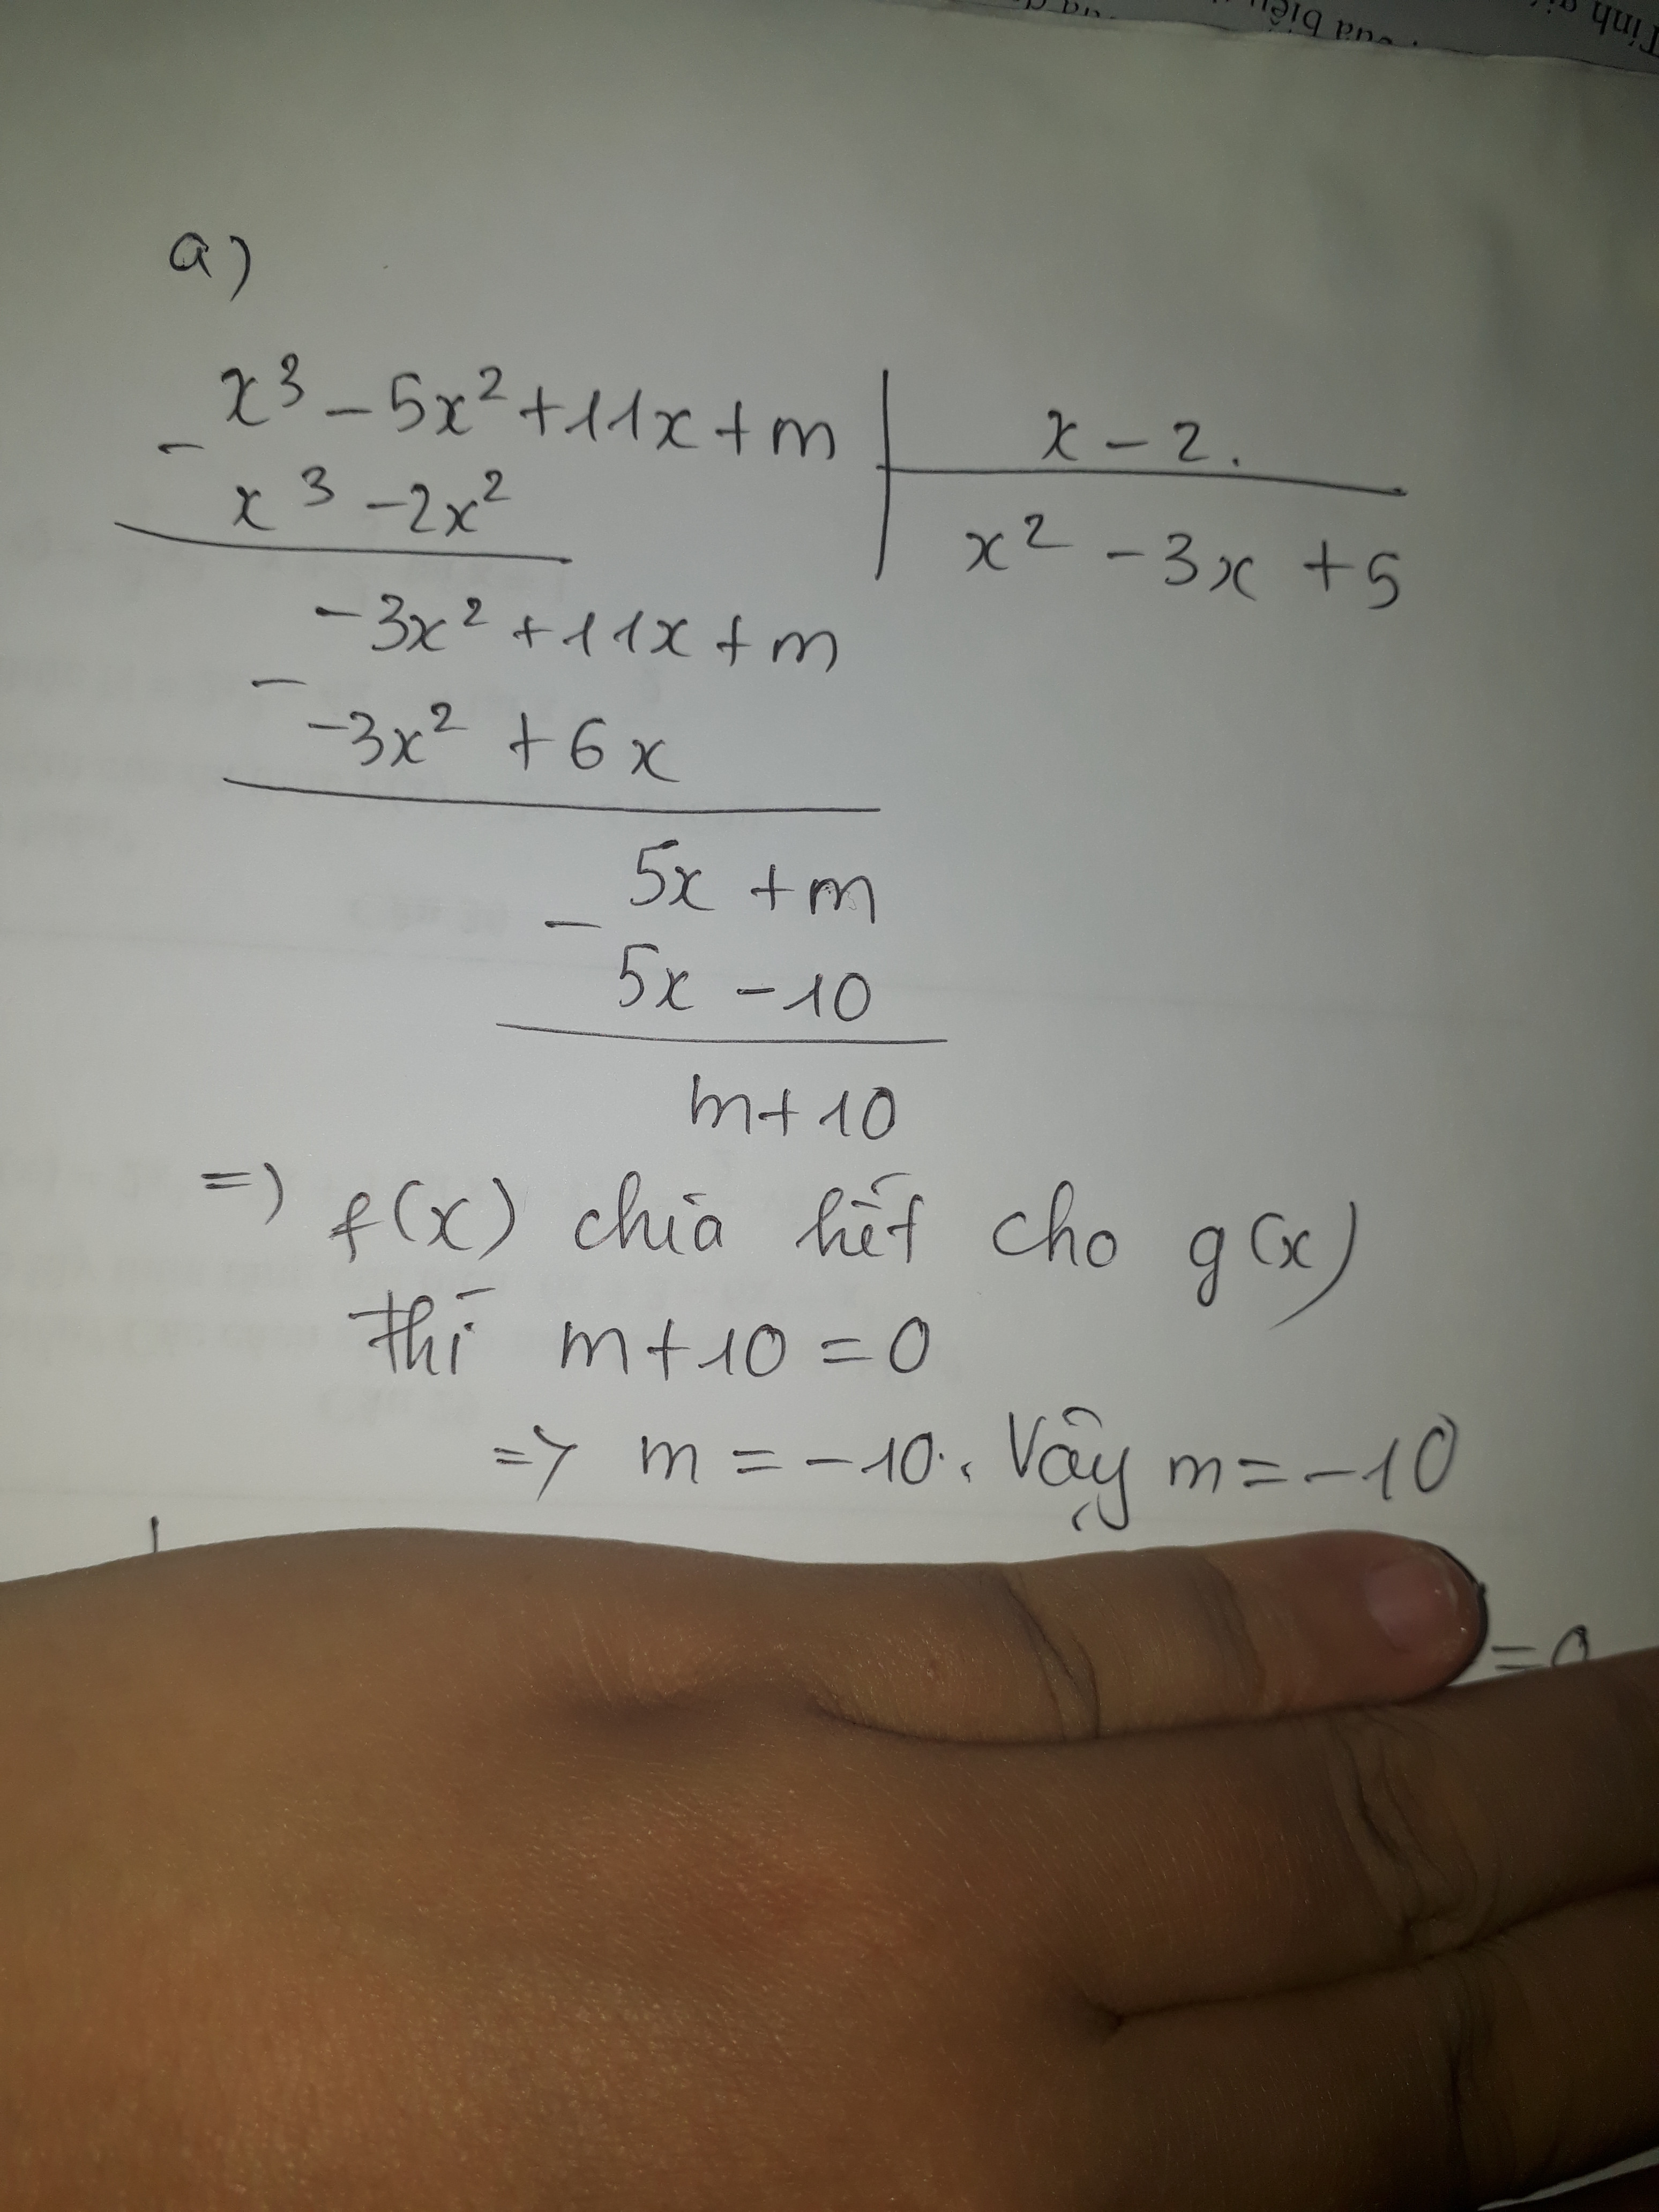 Tính
của biểu
a)
x³ - 5x² + 11x + m | x - 2.
- x³ - 2x² | x² - 3x + 5
-3x² + 11x + m
- -3x² + 6x
5x + m
- 5x - 10
m + 10
=) f(x) chia hết cho g(x)
thì m + 10 = 0
=> m = -10. Vậy m = -10
= 0